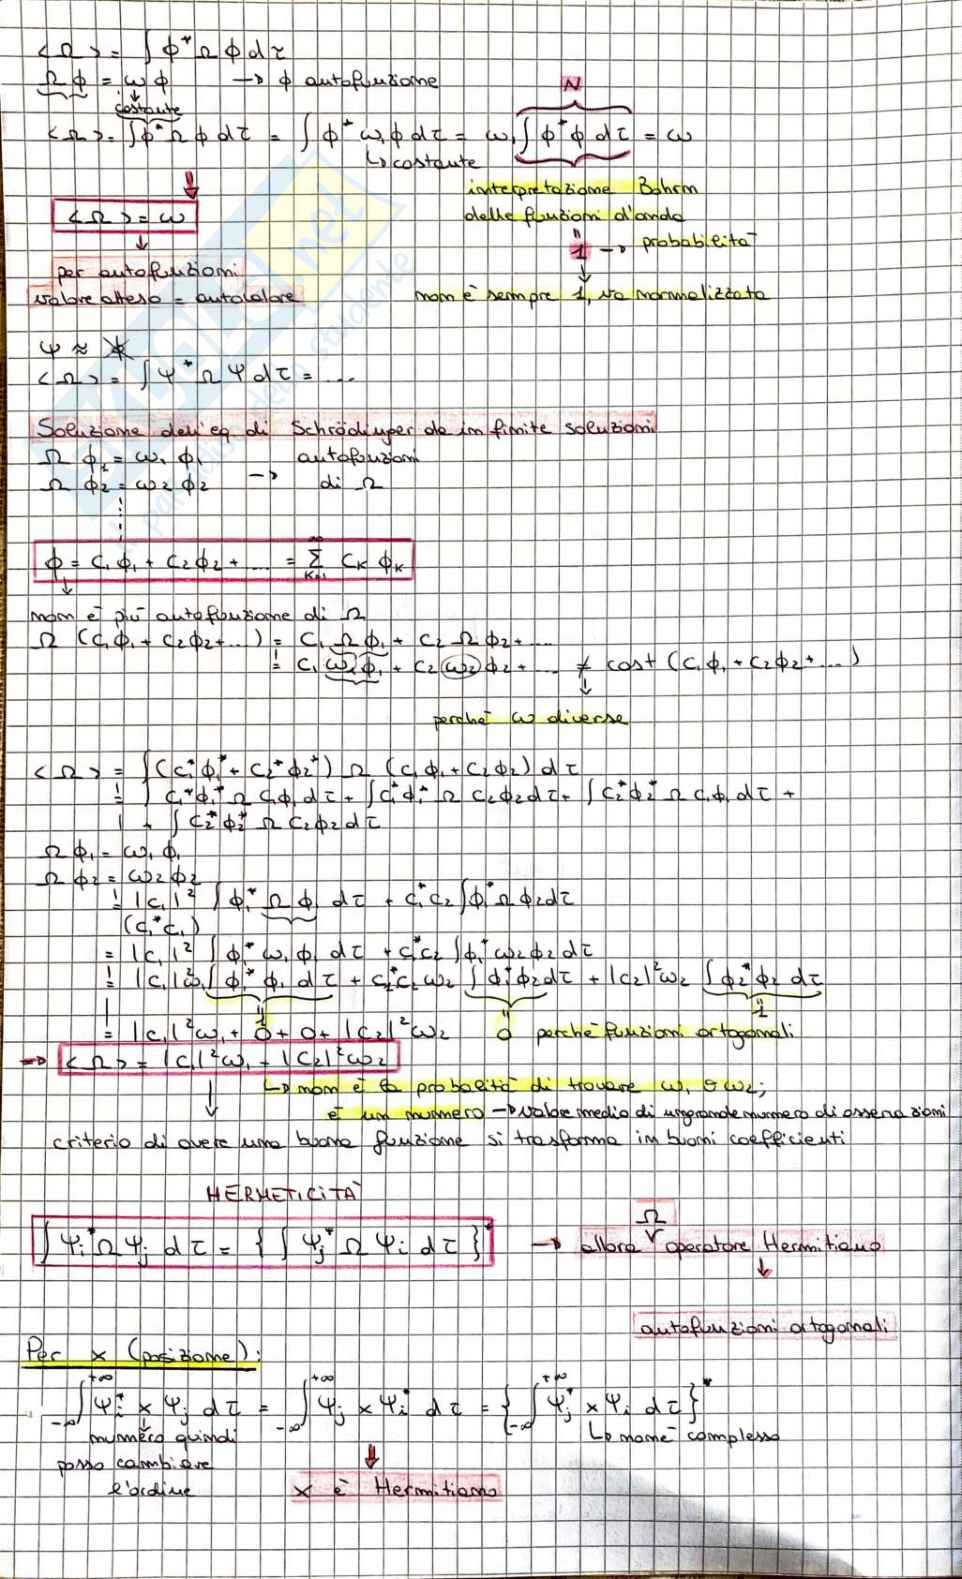 <Ω> = ∫ ϕ* Ω ϕ dτ
Ωϕ = ωϕ → ϕ autofunzione
costante
N
<Ω> = ∫ϕ* Ω ϕ dτ = ∫ ϕ* ω, ϕ dτ = ω, ∫ ϕ* ϕ dτ = ω
↳ costante
interpretazione Bohrm
<Ω> = ω
delle funzioni d'onda
"
1 → probabilità
per autofunzioni
valore atteso = autovalore
non è sempre 1, va normalizzata
Ψ ≈
<Ω> = ∫ Ψ* Ω Ψ dτ = ...
Soluzione dell'eq. di Schrödinger da infinite soluzioni
Ω ϕ₁ = ω₁ ϕ₁ autofunzioni
Ω ϕ₂ = ω₂ ϕ₂ → di Ω
ϕ = C₁ϕ₁ + C₂ϕ₂ + .... = ∞ΣK=1 CK ϕK
non è più autofunzione di Ω
Ω (C₁ϕ₁ + C₂ϕ₂ + ...) = C₁ Ωϕ₁ + C₂ Ωϕ₂ + ....
= C₁ ω₁ϕ₁ + C₂ ω₂ ϕ₂ + .... ≠ cost (C₁ϕ₁ + C₂ϕ₂ + ...)
perchè ω diverse
<Ω> = ∫(C₁*ϕ₁* + C₂*ϕ₂*) Ω (C₁ϕ₁ + C₂ϕ₂) dτ
= ∫ C₁*ϕ₁* Ω C₁ϕ₁ dτ + ∫C₁*ϕ₁* Ω C₂ϕ₂ dτ + ∫ C₂*ϕ₂* Ω C₁ϕ₁ dτ +
+ ∫ C₂*ϕ₂* Ω C₂ϕ₂ dτ
Ω ϕ₁ = ω₁ ϕ₁
Ω ϕ₂ = ω₂ ϕ₂
= |C₁|² ∫ ϕ₁* Ω ϕ₁ dτ + C₁*C₂ ∫ϕ₁* Ω ϕ₂ dτ
(C₁*C₁)
= |C₁|² ∫ ϕ₁* ω₁ ϕ₁ dτ + C₁*C₂ ∫ϕ₁* ω₂ ϕ₂ dτ
= |C₁|²ω₁ ∫ ϕ₁* ϕ₁ dτ + C₁*C₂ ω₂ ∫ ϕ₁*ϕ₂ dτ + |C₂|²ω₂ ∫ ϕ₂*ϕ₂ dτ
1 1
= |C₁|²ω₁ + 0 + 0 + |C₂|²ω₂ 0 perchè funzioni ortogonali
→ <Ω> = |C₁|²ω₁ + |C₂|²ω₂
↳ non è la probalità di trovare ω₁ o ω₂;
è un numero → valore medio di un grande numero di osservazioni
criterio di avere una buona funzione si trasforma in buoni coefficienti
HERMETICITÀ
Ω
∫ Ψi* Ω Ψj dτ = { ∫ Ψj* Ω Ψi dτ }* → allora operatore Hermitiano
autofunzioni ortogonali
Per x (posizione):
∫-∞+∞ Ψi* x Ψj dτ = ∫-∞+∞ Ψj x Ψi* dτ = {∫-∞+∞ Ψj* x Ψi dτ}*
numero quindi
↳ non è complesso
posso cambiare
l'ordine
x è Hermitiano